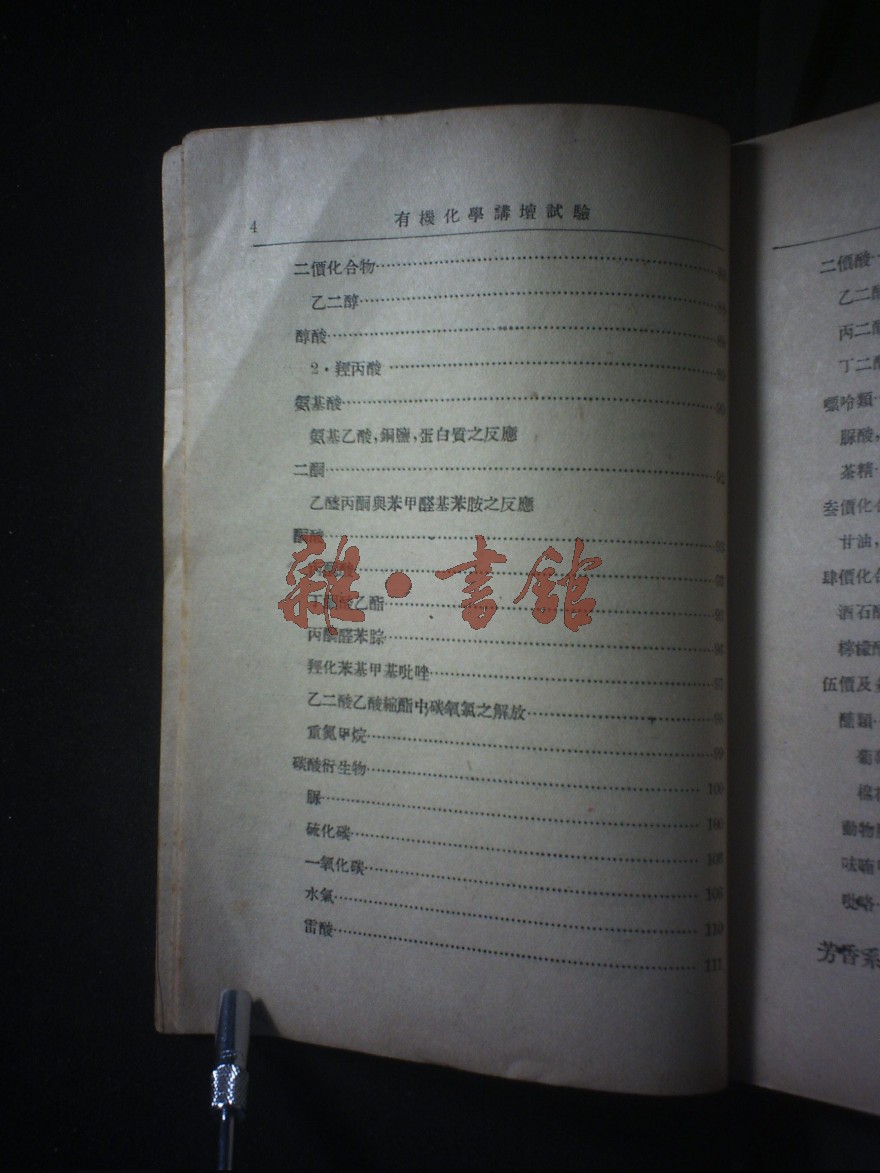 4
有機化學講壇試驗
二價化合物
乙二醇
醇酸
2·羥丙酸
氨基酸
氨基乙酸,銅鹽,蛋白質之反應
二酮
乙醯丙酮與苯甲醛基苯胺之反應
酮酸
丁酮酸乙酯
丙酮醛苯腙
羥化苯基甲基吡唑……97
乙二酸乙酸縮酯中碳氧氣之解放……98
重氮甲烷……99
碳酸衍生物……100
脲……100
硫化碳……107
一氧化碳……108
水氣……110
雷酸……111
雜·書館
二價酸
乙二
丙二
丁二
嘌呤類
脲酸,
茶精
叁價化合
甘油,
肆價化合
酒石
檸檬
伍價及
醣類
動物
呋喃
吡咯
芳香系